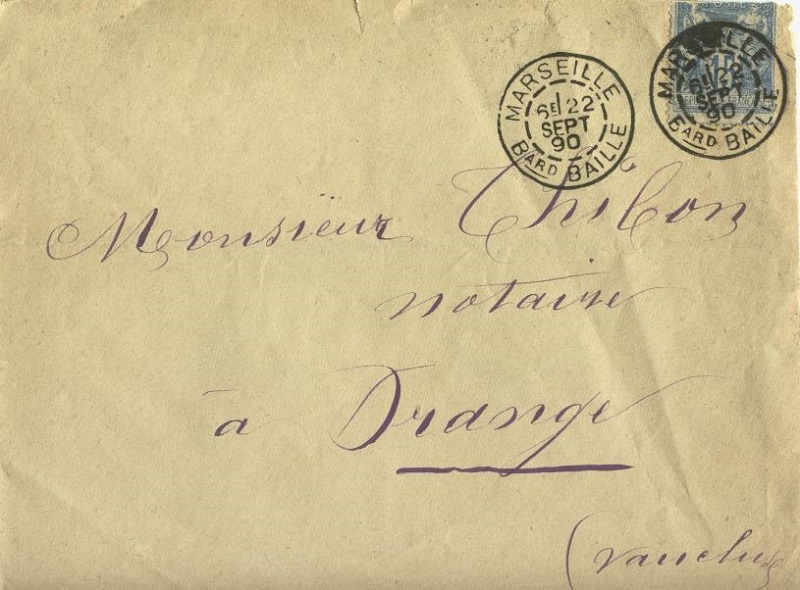 MARSEILLE
6E 22
SEPT
90
BARD BAILLE
MARSEILLE
6E 22
SEPT
90
BARD BAILLE
Monsieur Thibon
notaire
à Orange
(Vaucluse